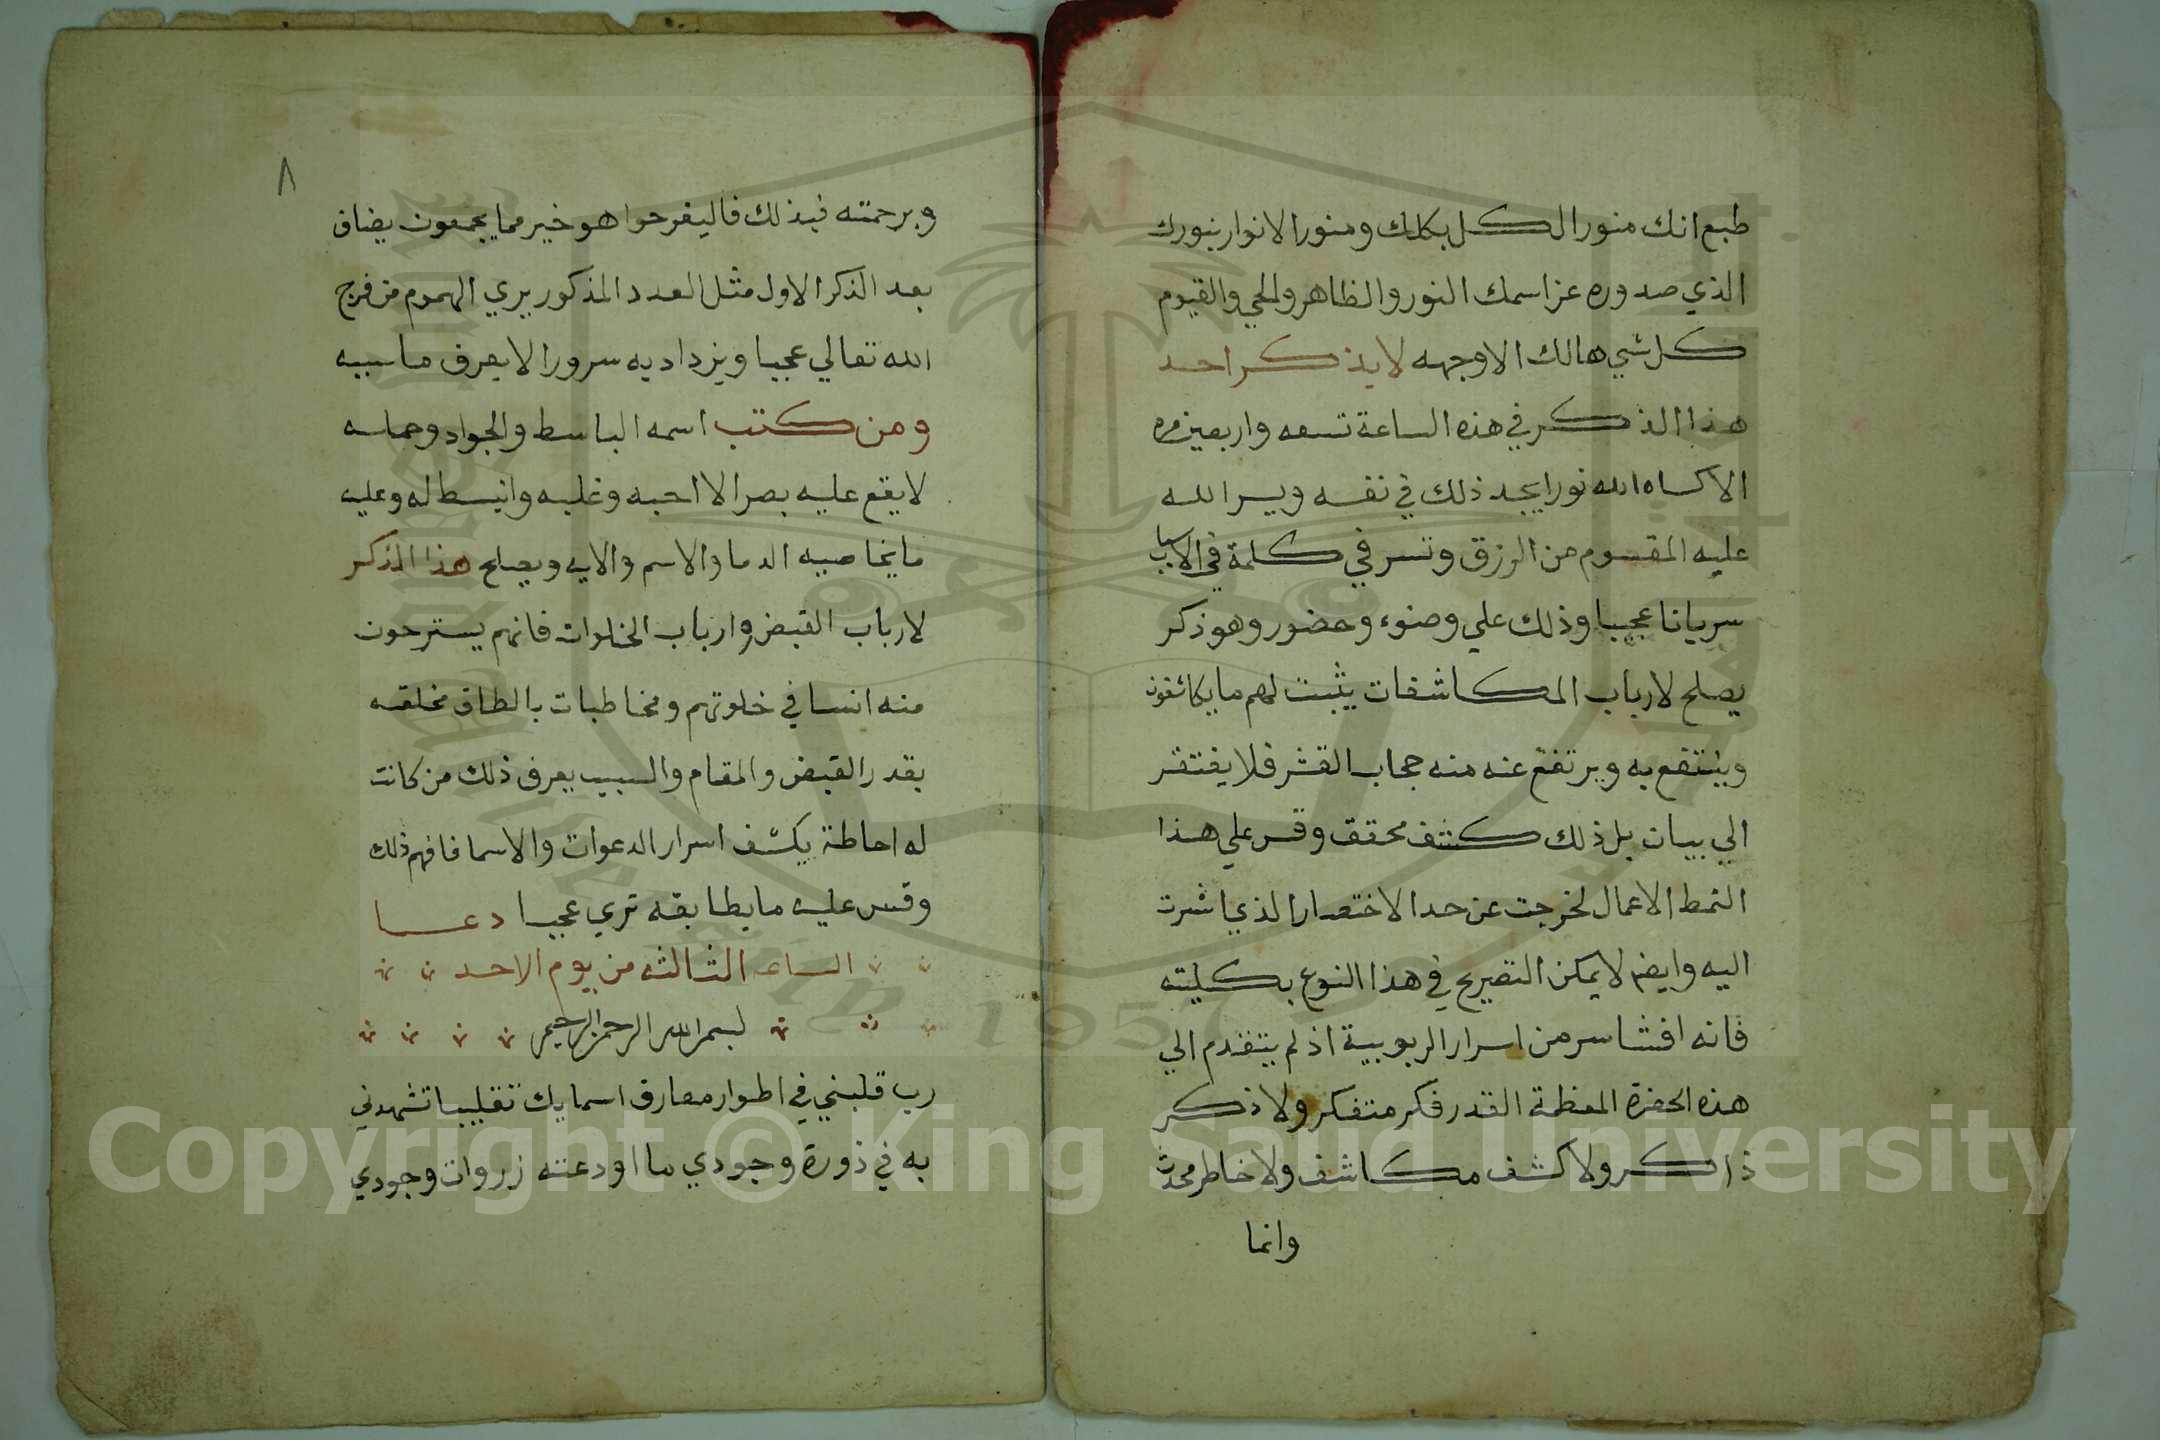 طبع انك منور الكل بكلك ومنور الانوار بنورك
الذي صدوره عن اسمك النور والظاهر والحي والقيوم
كل شي هالك الا وجهه لا يذكر احد
هذا الذكر في هذه الساعة تسعه واربعين مره
الا كساه الله نورا يجد ذلك في نفسه ويسر الله
عليه المقسوم من الرزق وتسر في كلمة في الاسباب
سريانا عجيبا وذلك علي وضوء وحضور وهو ذكر
يصلح لارباب المكاشفات يثبت لهم ما يكاشفون
وينتفع به ويرتفع عنه منه حجاب القشر فلا يفتقر
الي بيان بل ذلك كشف محقق وقس علي هذا
النمط الاعمال لخرجت عن حد الاختصار الذي اشرت
اليه وايضا لا يمكن التصريح في هذا النوع بكليته
فانه افشا سر من اسرار الربوبية اذ لم يتقدم الي
هذه الحضرة المعظمة القدر فكر متفكر ولا ذكر
ذاكر ولا كشف مكاشف ولا خاطر محدث
وانما
٨
وبرحمته فبذلك فاليفرحوا هو خير مما يجمعون يضاف
بعد الذكر الاول مثل العدد المذكور يري الهموم من فرج
الله تعالي عجيبا ويزداد به سرورا لا يعرف ما سببه
ومن كتب اسمه الباسط والجواد وحمله
لا يقع عليه بصر الا احبه وغلبه وانبسط له وعليه
الدعا والاسم والايه ويصلح هذا الذكر
لارباب القبض وارباب الخلوات فانهم يسترحون
منه انسا في خلوتهم ومخاطبات بالطاف مختلفه
بقدر القبض والمقام والسبب يعرف ذلك من كانت
له احاطة يكشف اسرار الدعوات والاسما فافهم ذلك
وقس عليه ما يطابقه تري عجبا دعا
الساعه الثالثه من يوم الاحد
بسم الله الرحمن الرحيم
رب قلبني في اطوار معارف اسمايك تقليبا تشهدني
به في ذورة وجودي ما اودعته زروات وجودي
Copyright © King Saud University
1957